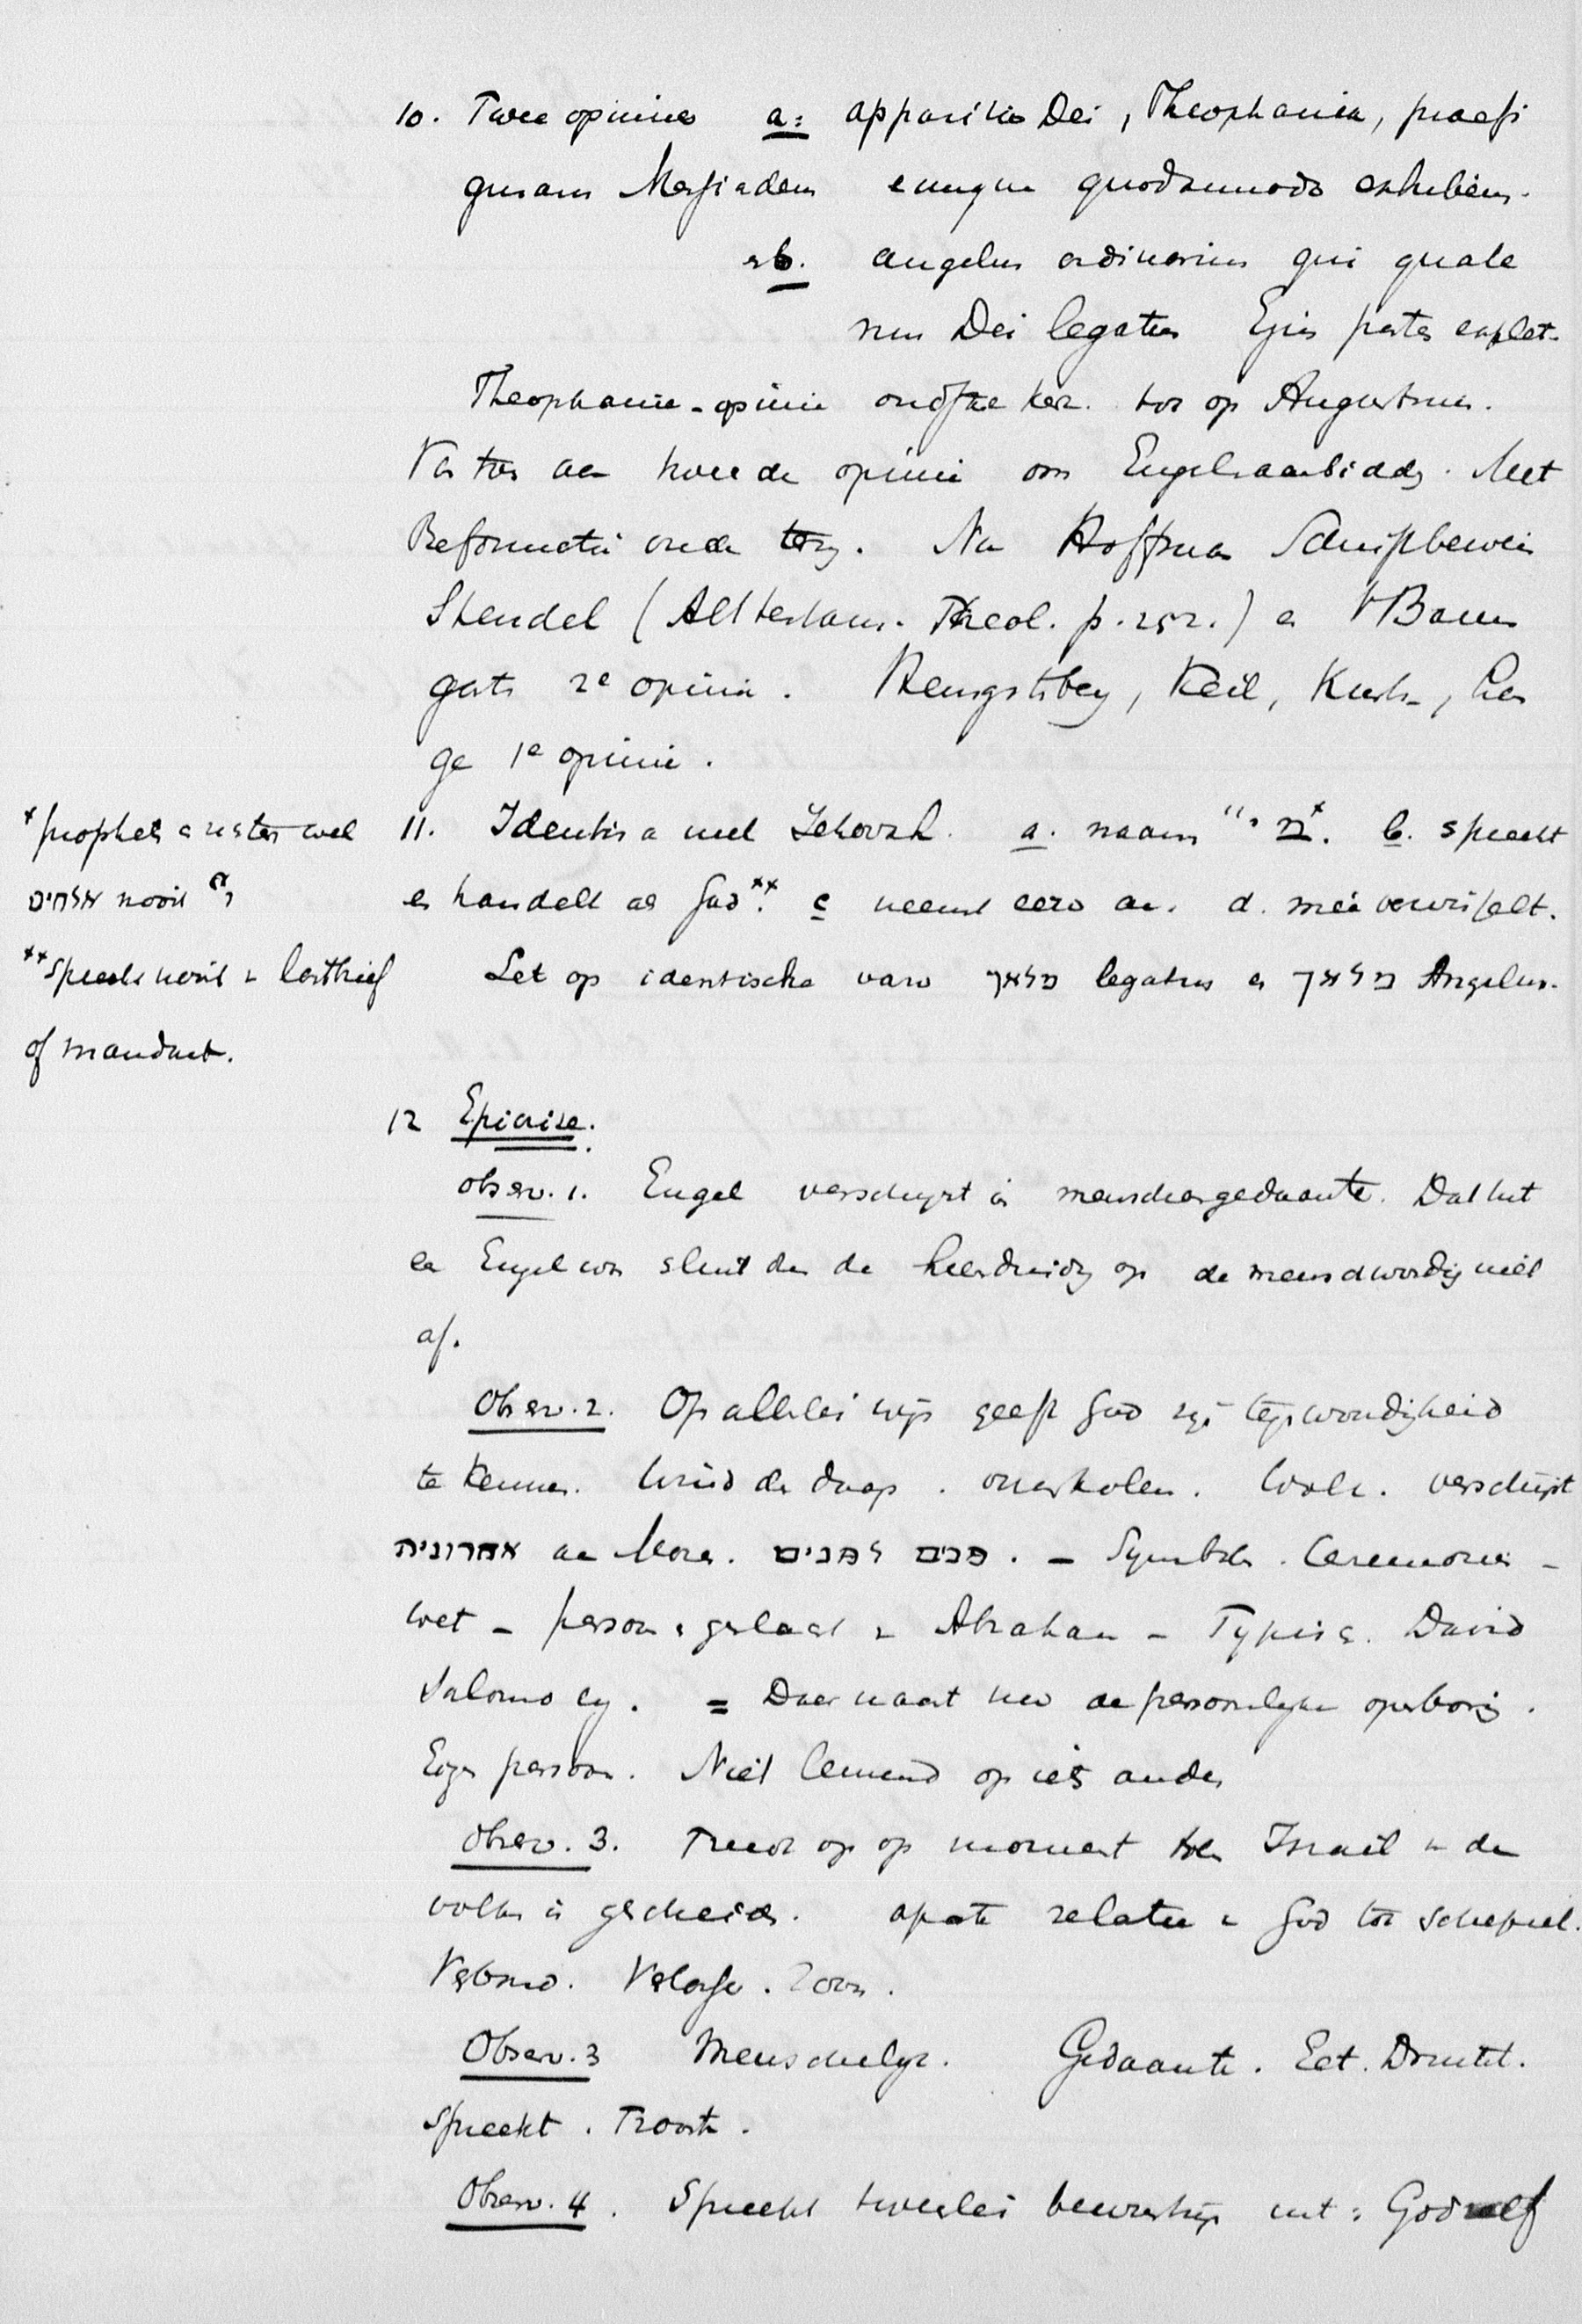 10. Twee opinies a: apparitio Dei, Theophania, praefi
gurans Messiadem eumque quodammodo exhibens.
b. angelus ordinarius qui quate
nus Dei legatus Ejus partes explet.
Theophanie-opinie oudste kerk. tot op Augustinus.
Na hem de tweede opinie om Engelaanbidding. Met
Reformatie oude terug. Na Hoffman Schriftbeweis
Steudel (Alttestam. Theol. p. 252.) en Baum
garten 2e opinie. Hengstenberg, Keil, Kurtz, Lan
ge 1e opinie.
11. Identisch met Jehovah. a. naam b. spreekt
en handelt als God.** c neemt eere aan. d. mee verwisselt.
*prophet en priester wel
אלהים nooit
**Spreekt nooit in lasthief
of mandaat.
Let op identische van מלאך legatus en מלאך Angelus.
12 Epicrise.
observ. 1. Engel verschijnt in menschengedaante. Dat het
een Engel was sluit dus de heenduiding op de menschwording niet
af.
Observ. 2. Op allerlei wijs geeft God zijn tegenwoordigheid
te kennen. Wind des daags. vuurkolom. Wolk. verschijnt
אחרוניה aan Mozes. פנים לפנים. – Symbolen. Ceremonien –
wet – persoon geslacht in Abraham – Typisch. David
Salomo eg. = Daarnaast nu de persoonlijke openbaring.
Eigen persoon. Niet leunend op iets anders
Observ. 3. Treedt op op moment toen Israel van de
volken is gescheiden. aparte relatie in God tot schepsel.
Verbond. Verlosser. Zoon.
Observ. 3 Menschelijk. Gedaante. Eet. Drinkt.
Spreekt. Troost.
Observ. 4. Spreekt tweeërlei bewustzijn uit: God zelf